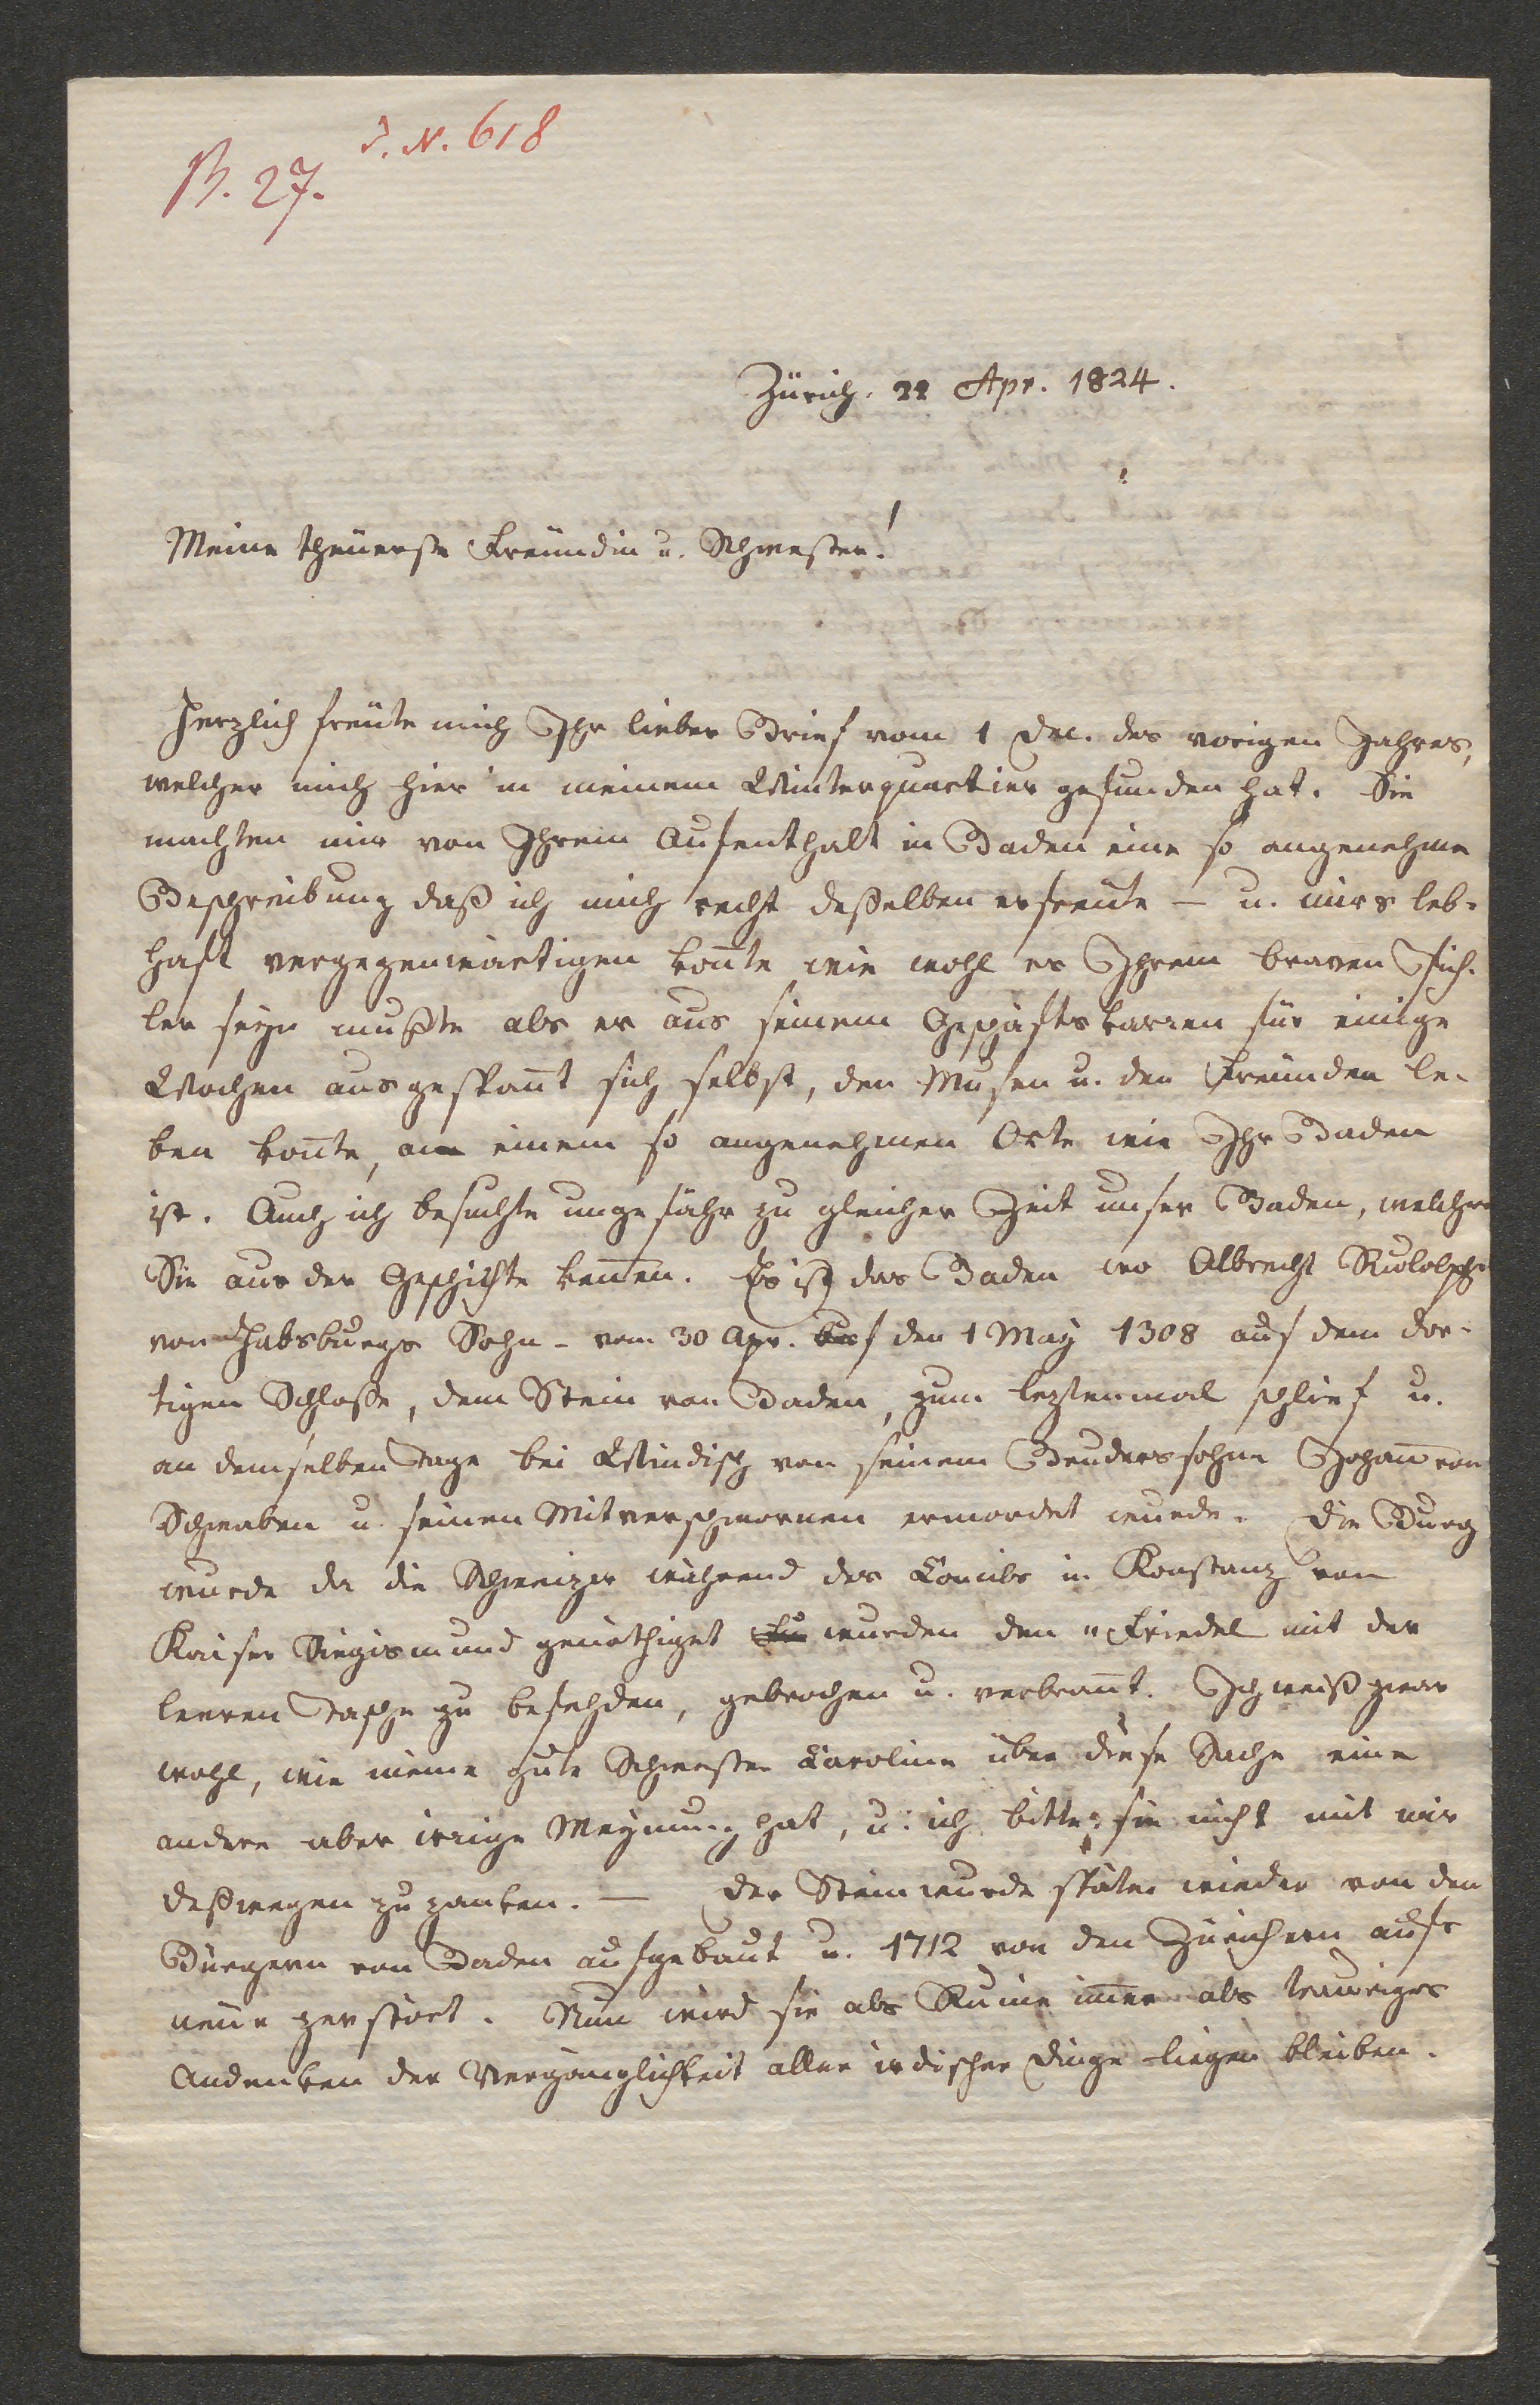 I. N. 618
B. 27.
Zürich. 22 Apr. 1824.
Meine theuerste Freundin u. Schwester!
Herzlich freute mich Ihr lieber Brief vom 1 Dec. des vorigen Jahres,
welcher mich hier in meinem Winterquartier gefunden hat. Sie
machten mir von Ihrem Aufenthalt in Baden eine so angenehme
Beschreibung daß ich mich recht deßelben erfreute — u. mirs leb-
haft vergegenwärtigen konnte wie wohl es Ihrem braven Pich-
ler seyn mußte als er aus seinem Geschäftskarren für einige
Wochen ausgespannt sich selbst, den Musen u. den Freunden le-
ben konnte, an einem so angenehmen Orte wie Ihr Baden
ist. Auch ich besuchte ungefähr zu gleicher Zeit unser Baden, welches
Sie aus der Geschichte kennen. Es ist das Baden wo Albrecht Rudolph
von Habsburgs Sohn – vom 30 Apr. auf den 1 May 1308 auf dem dor-
tigen Schloße, dem Stein von Baden, zum leztenmal schlief u.
an demselben Tage bei Windisch von seinem Bruderssohne Johann von
Schwaben u. seinen Mitverschwornen ermordet wurde. Die Burg
wurde da die Schweizer während des Concils in Konstanz von
Kaiser Siegismund genöthiget wurden den "Friedel mit der
leeren Tasche zu befehden, gebrochen u. verbrannt. Ich weiß zwar
wohl, wie meine gute Schwester Caroline über diese Sache eine
andere aber irrige Meynung hat, u. ich bitte sie nicht mit mir
deßwegen zu zanken. — Der Stein wurde später wieder von den
Bürgern von Baden aufgebaut u. 1712 von den Zürichern aufs
neue zerstört. Nun wird sie als Ruine immer als trauriges
Andenken der Vergänglichkeit aller irdischer Dinge liegen bleiben.